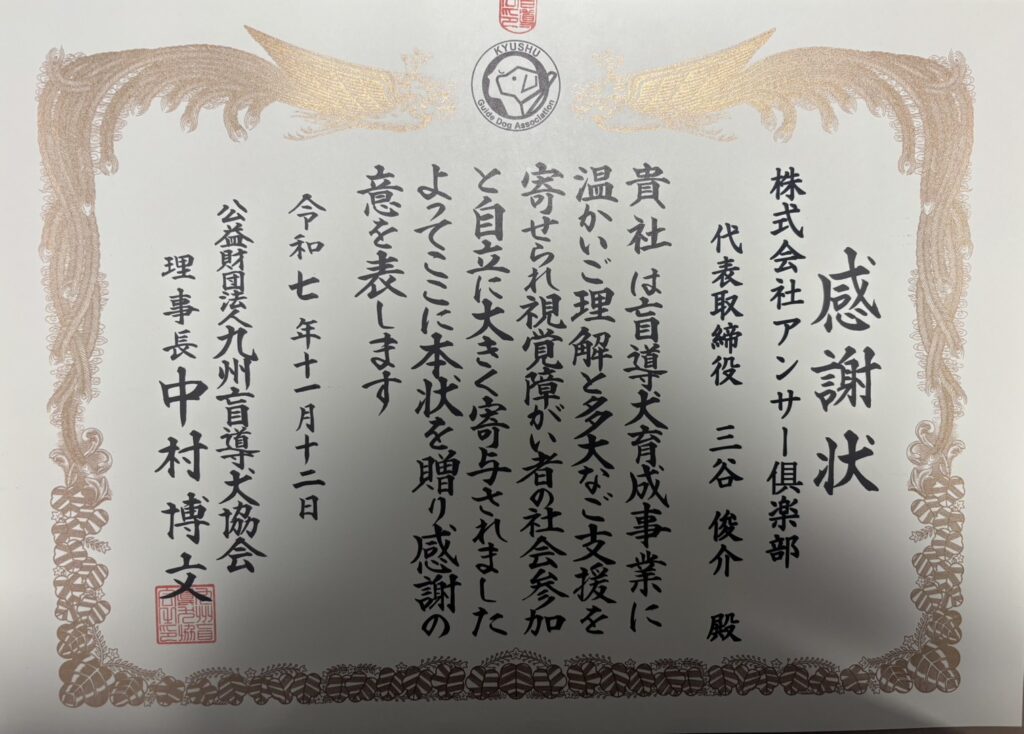 KYUSHU
Guide Dog Association
感謝状
株式会社アンサー倶楽部
代表取締役 三谷 俊介 殿
貴社は盲導犬育成事業に
温かいご理解と多大なご支援を
寄せられ視覚障がい者の社会参加
と自立に大きく寄与されました
よってここに本状を贈り感謝の
意を表します
令和七年十一月十二日
公益財団法人九州盲導犬協会
理事長 中村博文